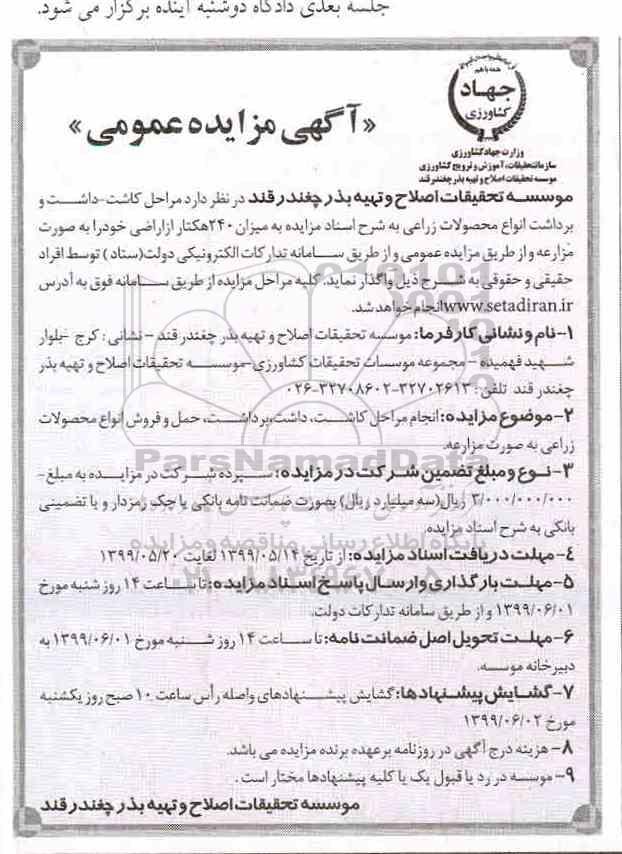 جلسه بعدی دادگاه دوشنبه آینده برگزار می شود.
همه با هم
جهاد
کشاورزی
وزارت جهاد کشاورزی
سازمان تحقیقات، آموزش و ترویج کشاورزی
موسسه تحقیقات اصلاح و تهیه بذر چغندر قند
«آگهی مزایده عمومی»
موسسه تحقیقات اصلاح و تهیه بذر چغندر قند در نظر دارد مراحل کاشت-داشت و
برداشت انواع محصولات زراعی به شرح اسناد مزایده به میزان ۲۴۰هکتار ازاراضی خودرا به صورت
مزارعه و از طریق مزایده عمومی و از طریق سامانه تدارکات الکترونیکی دولت(ستاد) توسط افراد
حقیقی و حقوقی به شرح ذیل واگذار نماید. کلیه مراحل مزایده از طریق سامانه فوق به آدرس
www.setadiran.ir انجام خواهد شد.
۱-نام و نشانی کارفرما: موسسه تحقیقات اصلاح و تهیه بذر چغندر قند - نشانی: کرج -بلوار
شهید فهمیده -مجموعه موسسات تحقیقات کشاورزی-موسسه تحقیقات اصلاح و تهیه بذر
چغندر قند تلفن: ۳۲۷۰۲۶۱۳-۳۲۷۰۸۶۰۲-۰۲۶
۲-موضوع مزایده: انجام مراحل کاشت، داشت،برداشت، حمل و فروش انواع محصولات
زراعی به صورت مزارعه.
۳-نوع و مبلغ تضمین شرکت در مزایده: سپرده شرکت در مزایده به مبلغ-
۳/۰۰۰/۰۰۰/۰۰۰ ریال(سه میلیارد ریال) بصورت ضمانت نامه بانکی یا چک رمزدار و یا تضمینی
بانکی به شرح اسناد مزایده.
۴-مهلت دریافت اسناد مزایده: از تاریخ ۱۳۹۹/۰۵/۱۴ لغایت ۱۳۹۹/۰۵/۲۰
۵-مهلت بارگذاری و ارسال پاسخ اسناد مزایده: تا ساعت ۱۴ روز شنبه مورخ
۱۳۹۹/۰۶/۰۱ و از طریق سامانه تدارکات دولت.
۶-مهلت تحویل اصل ضمانت نامه: تا ساعت ۱۴ روز شنبه مورخ ۱۳۹۹/۰۶/۰۱ به
دبیرخانه موسسه.
۷-گشایش پیشنهادها: گشایش پیشنهادهای واصله رأس ساعت ۱۰ صبح روز یکشنبه
مورخ ۱۳۹۹/۰۶/۰۲
۸- هزینه درج آگهی در روزنامه بر عهده برنده مزایده می باشد.
۹-موسسه در رد یا قبول یک یا کلیه پیشنهادها مختار است.
موسسه تحقیقات اصلاح و تهیه بذر چغندر قند
ParsNamadData
پایگاه اطلاع رسانی مناقصه و مزایده